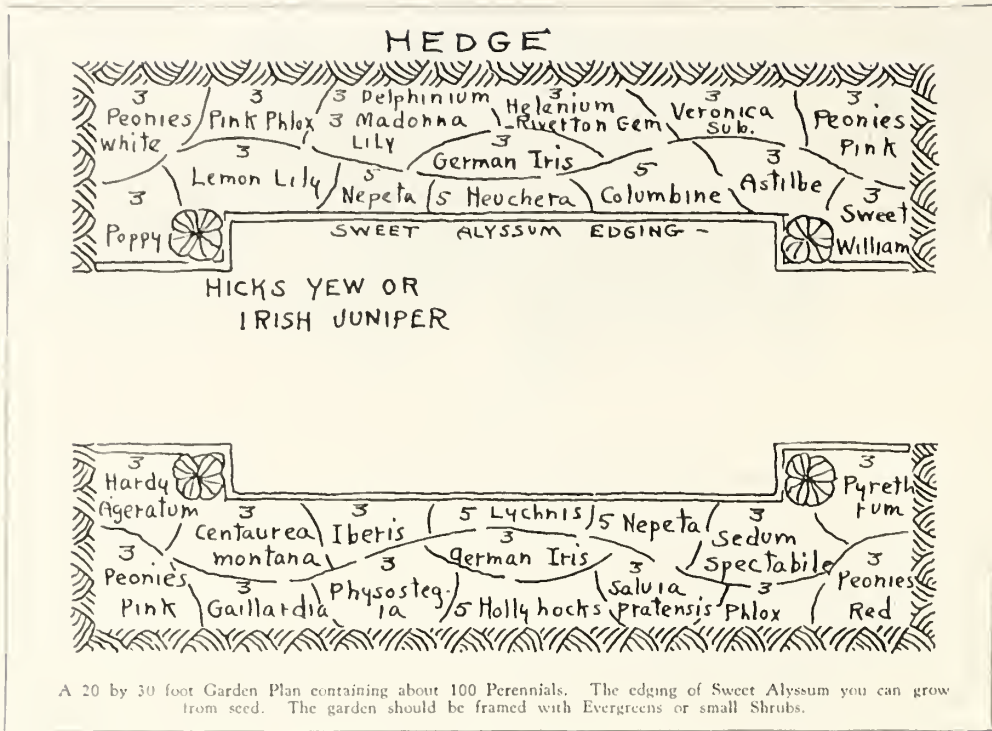 HEDGE
3
Peonies
white
3
Pink Phlox
3 Delphinium
3 Madonna
LILY
3
Helenium
-Riverton Gem
3
Veronica
Sub.
3
Peonies
Pink
3
Lemon Lily
5
Nepeta
3
German Iris
5 Heuchera
5
Columbine
3
Astilbe
3
Poppy
3
Sweet
William
SWEET ALYSSUM EDGING -
HICKS YEW OR
IRISH JUNIPER
3
Hardy
Ageratum
3
Centaurea
montana
3
Iberis
5 Lychnis
5 Nepeta
3
Sedum
Spectabile
3
Pyreth
rum
3
Peonies
Pink
3
Gaillardia
3
Physosteg-
ia
3
German Iris
5 Hollyhocks
3
Salvia
pratensis
3
Phlox
3
Peonies
Red
A 20 by 30 foot Garden Plan containing about 100 Perennials. The edging of Sweet Alyssum you can grow
from seed. The garden should be framed with Evergreens or small Shrubs.